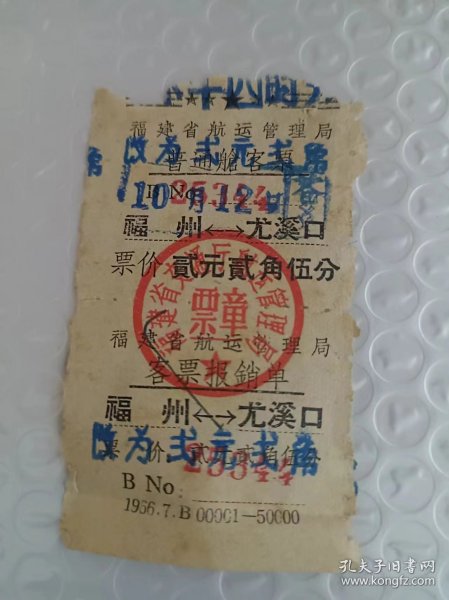 福建省航运管理局
改为弍元弍角
普通舱客票
B No 25344
10月12日
福 州←→尤溪口
票价 貳元貳角伍分
票章
福建省航运管理局
客票报銷单
福 州←→尤溪口
改为弍元弍角
票 价 貳元貳角伍分
25344
B No:
1956.7.B 00001—50000
孔夫子旧书网
www.kongfz.com